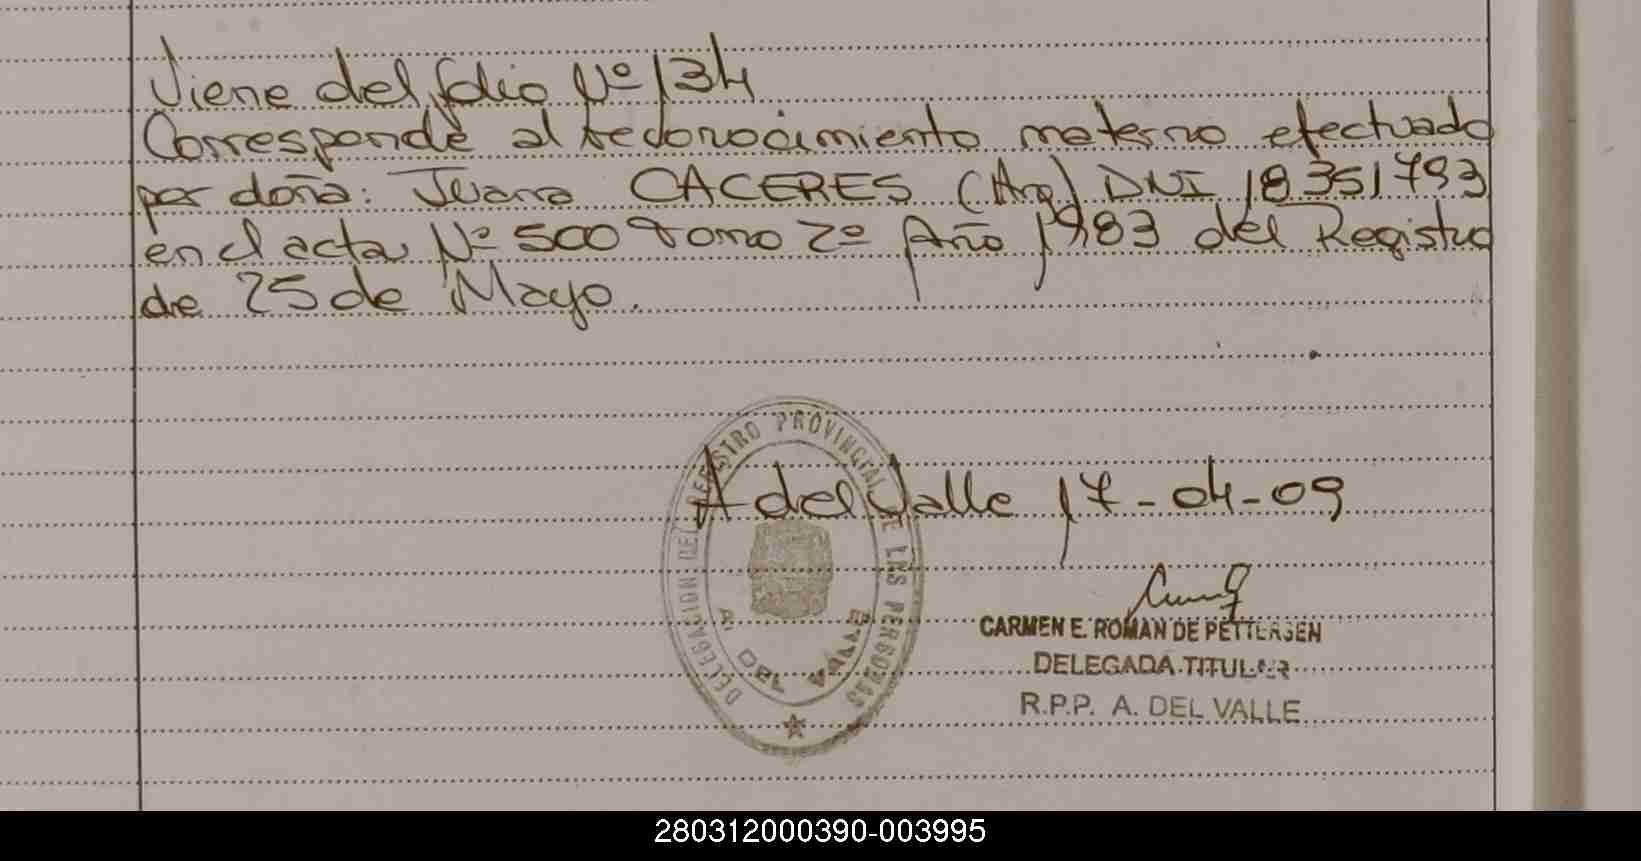 Viene del folio Nº 134
Corresponde al reconocimiento materno efectuado
por doña: Juana CACERES (Arg) DNI 18351793
en el acta Nº 500 Tomo 2º Año 1983 del Registro
de 25 de Mayo.
DELEGACION DEL REGISTRO PROVINCIAL DE LAS PERSONAS
A. DEL VALLE
A del Valle 17-04-09
CARMEN E. ROMAN DE PETTERSEN
DELEGADA TITULAR
R.P.P. A. DEL VALLE
280312000390-003995